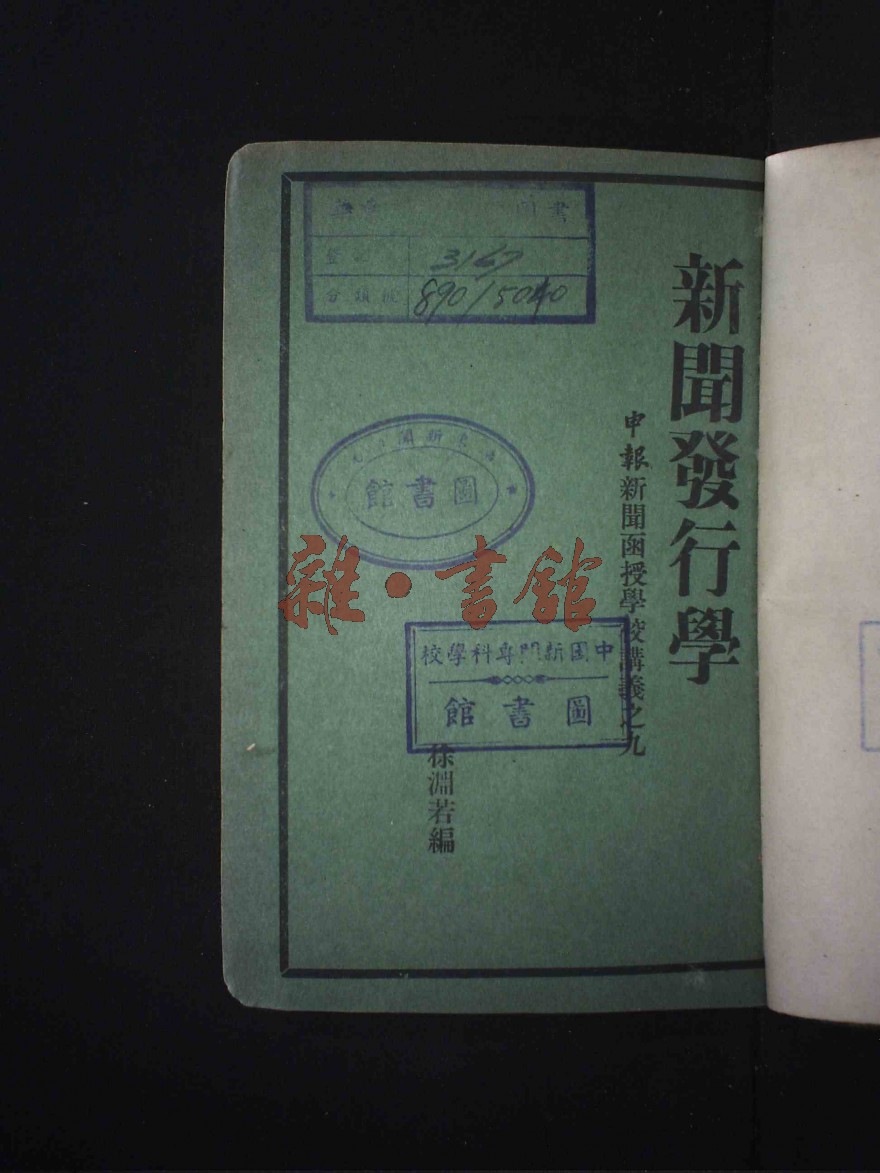 新聞發行學
申報新聞函授學校講義之九
徐淵若編
書圖
登
3167
分類號
890/5040
新聞
圖書館
中國新聞專科學校
圖書館
雜·書館